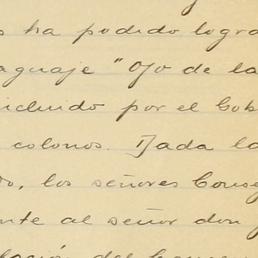 s ha podido logra
aguaje "Ojo de la
cluido por el Gob
colonos. Dada la
do, los señores Conse
nte al señor don